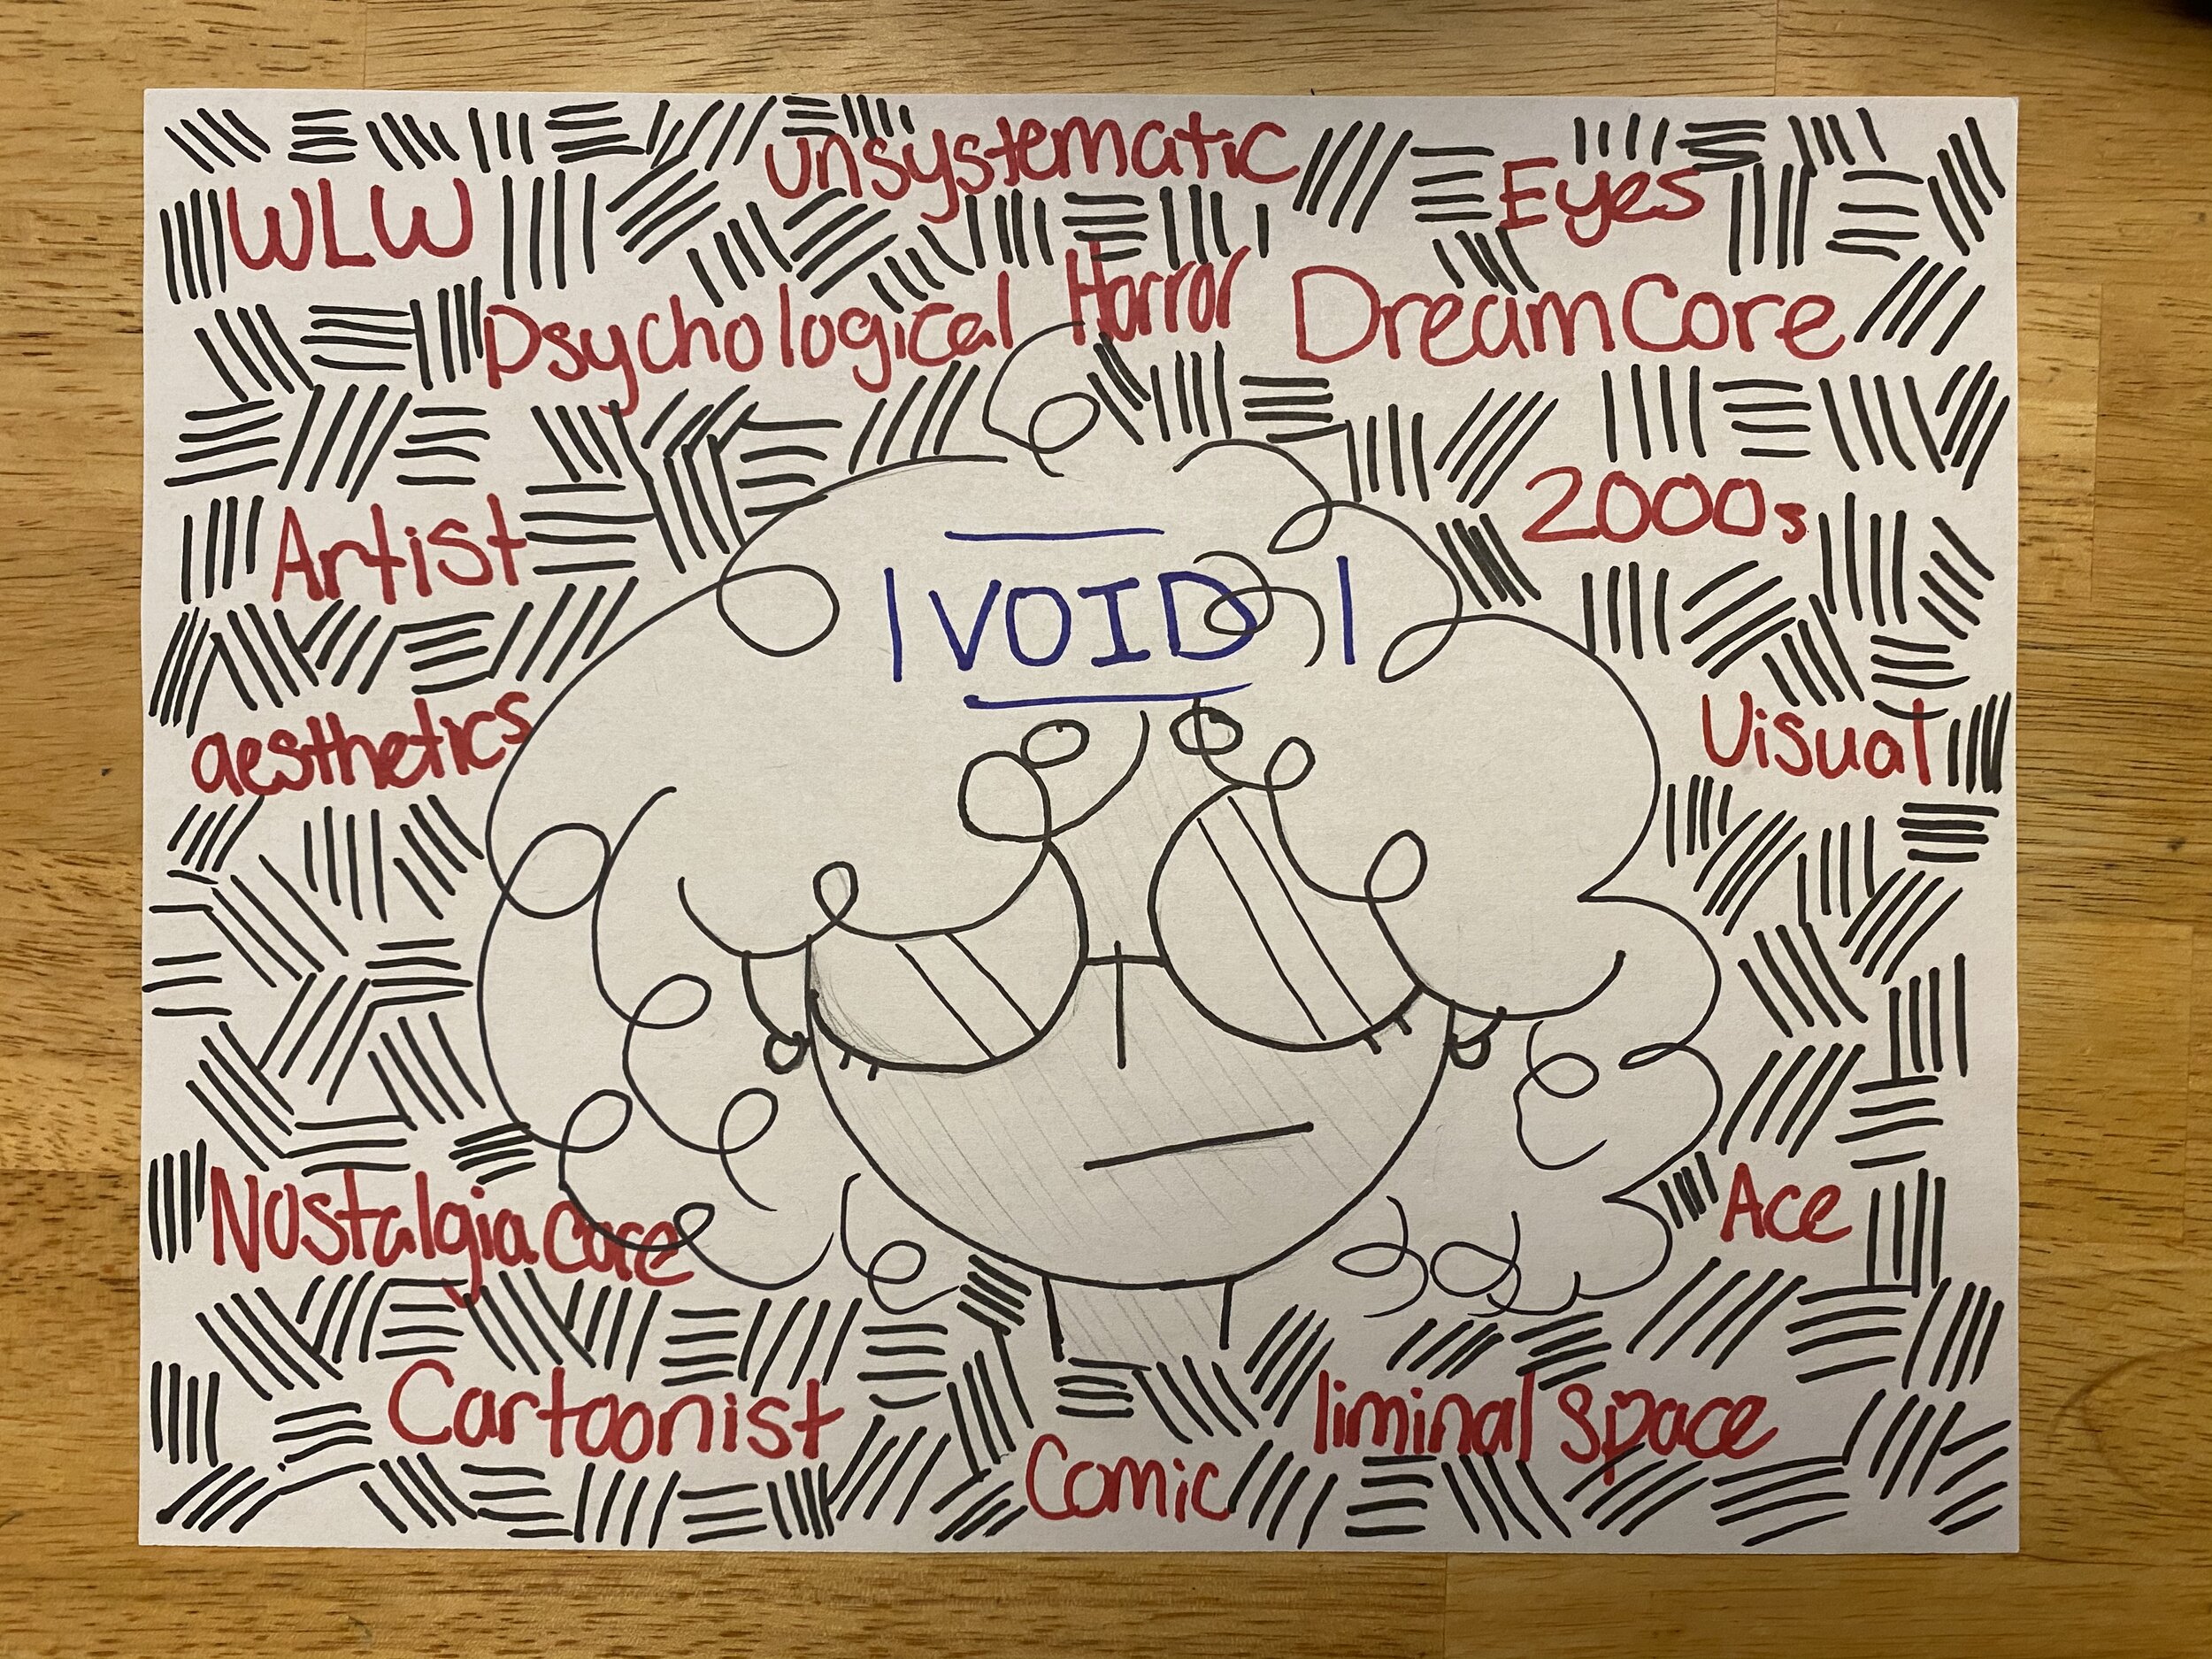 unsystematic
Eyes
WLW
Psychological Horror
DreamCore
2000s
Artist
VOID
aesthetics
Visual
Nostalgia Core
Ace
Cartoonist
liminal space
Comic